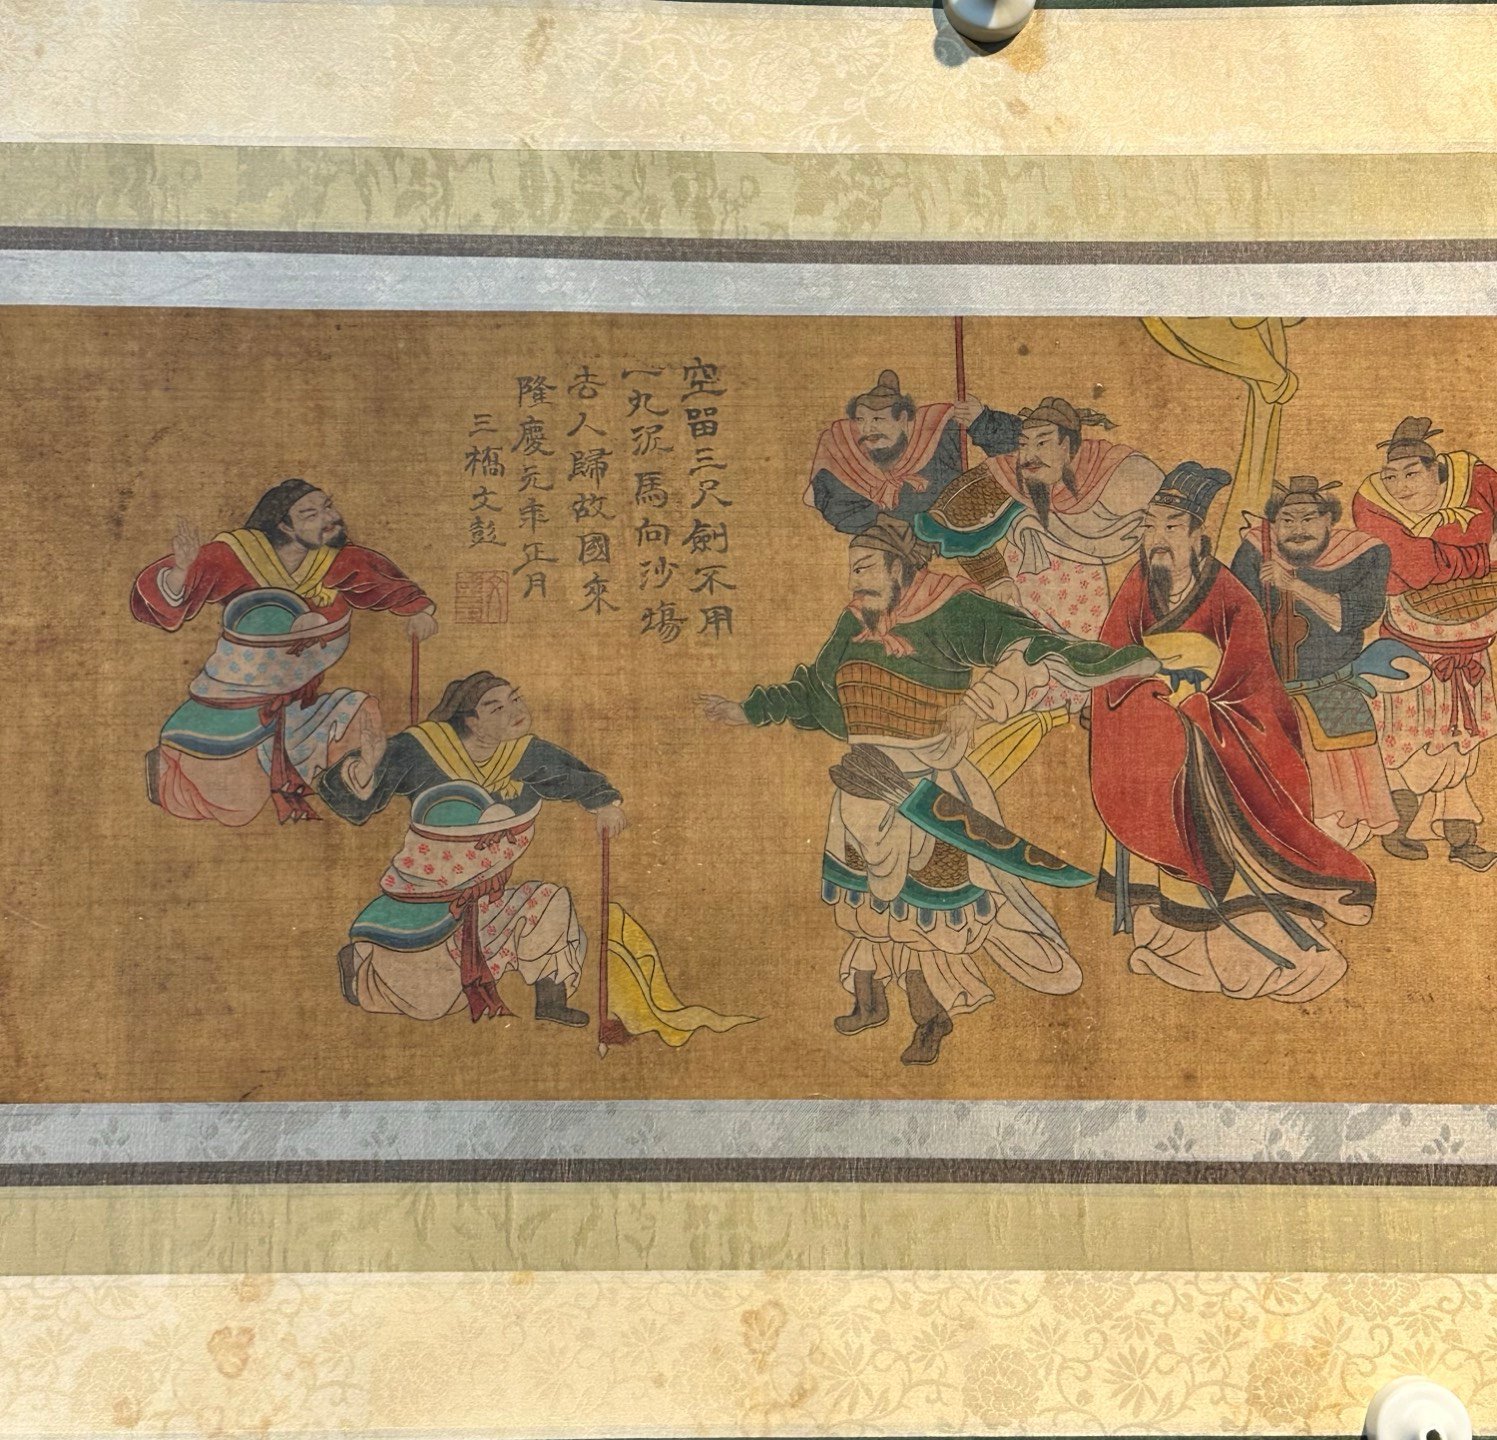 空留三尺劍不用
一丸泥馬向沙場
去人歸故國來
隆慶元年正月
三橋文彭